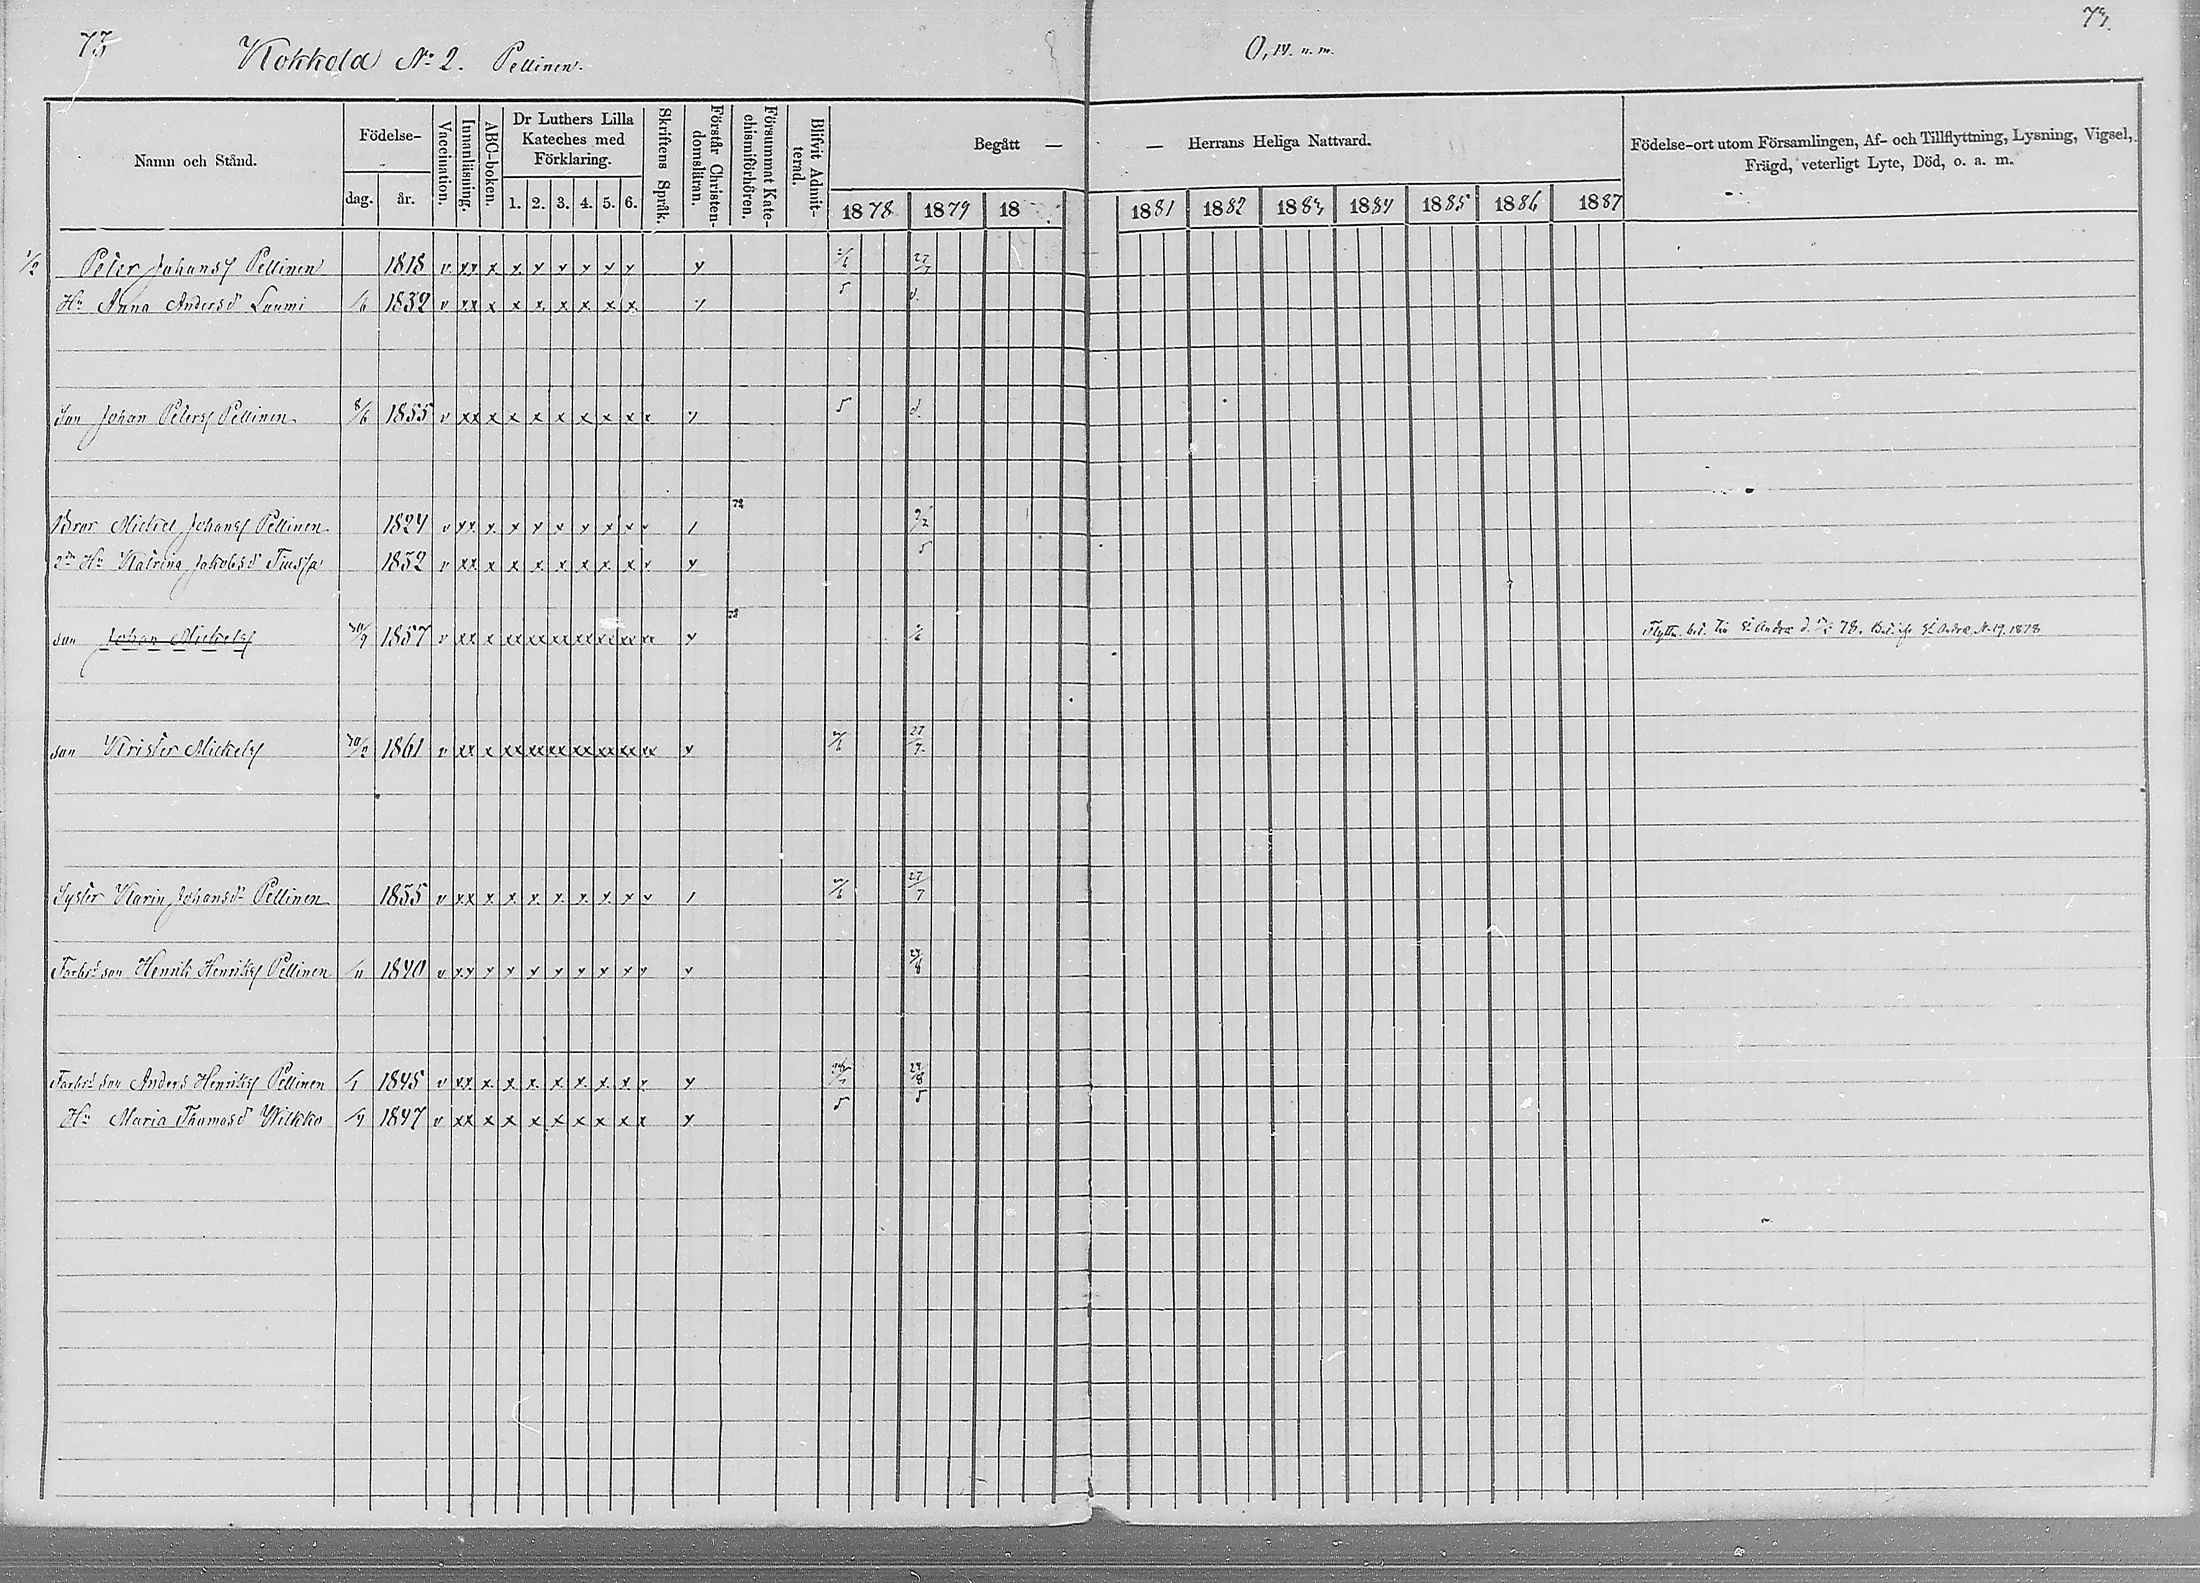 73
Kokkola No 2. Pellinen.
0,14 n. m.
73.
Namn och Stånd.
Födelse-
dag.
år.
Vaccination.
Innanläsning.
ABC-boken.
Dr Luthers Lilla
Kateches med
Förklaring.
1. 2. 3. 4. 5. 6.
Skriftens Språk.
Förstår Christen-
domsläran.
Försummat Kate-
chismiförhören.
Blifvit Admit-
terad.
Begått —
— Herrans Heliga Nattvard.
1878 1879 18
1881 1882 1883 1884 1885 1886 1887
Födelse-ort utom Församlingen, Af- och Tillflyttning, Lysning, Vigsel,
Frägd, veterligt Lyte, Död, o. a. m.
1/2 Peter Johansf Pellinen 1818 v xx x x x x x x x 27/7
Hu Anna Andersd Luumi /6 1832 v xx x x x x x x x
Son Johan Petersf Pellinen 8/6 1855 v xx x x x x x x x x 5
Bror Mickel Johansf Pellinen 1824 v xx x x x x x x x
2dra Hu Katrina Jakobsd Tiussa 1832 v xx x x x x x x x 5
son Johan Mickelsf 30/9 1857 v xx x xx xx xx xx xx xx xx
Flyttn. bet. till St Andrae d. 78. Bet. ifr St Andrae, N. 19. 1878
son Krister Mickelsf 1861 v xx x xx xx xx xx xx xx xx 27/7
Syster Karin Johansd Pellinen 1835 v xx x x x x x x x 27/7
Farbrs son Henrik Henriksf Pellinen /11 1840 v xx x x x x x x x 24/8
Farbrs son Anders Henriksf Pellinen /1 1845 v xx x x x x x x x 24/8
Hu Maria Thomasd Wilkko /4 1847 v xx x x x x x x x 5 5